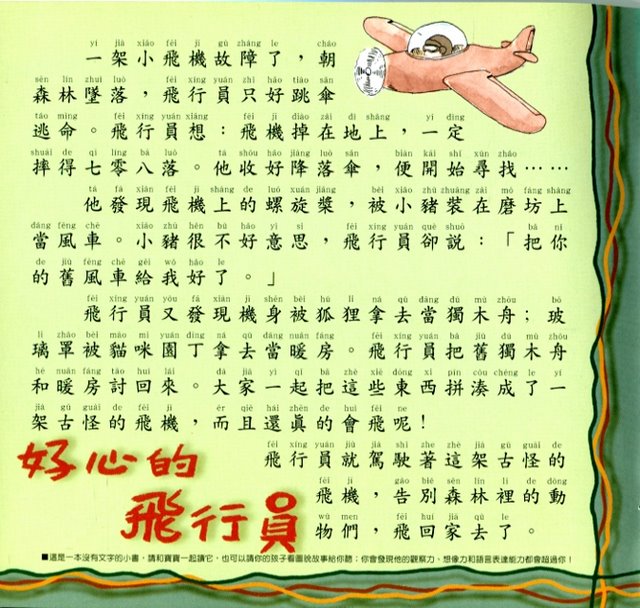 一架小飛機故障了，朝
森林墜落，飛行員只好跳傘
逃命。飛行員想：飛機掉在地上，一定
摔得七零八落。他收好降落傘，便開始尋找……
他發現飛機上的螺旋槳，被小豬裝在磨坊上
當風車。小豬很不好意思，飛行員卻說：「把你
的舊風車給我好了。」
飛行員又發現機身被狐狸拿去當獨木舟；玻
璃罩被貓咪園丁拿去當暖房。飛行員把舊獨木舟
和暖房討回來。大家一起把這些東西拼湊成了一
架古怪的飛機，而且還真的會飛呢！
飛行員就駕駛著這架古怪的
飛機，告別森林裡的動
物們，飛回家去了。
好心的
飛行員
■這是一本沒有文字的小書，請和寶寶一起讀它，也可以請你的孩子看圖說故事給你聽；你會發現他的觀察力、想像力和語言表達能力都會超過你！